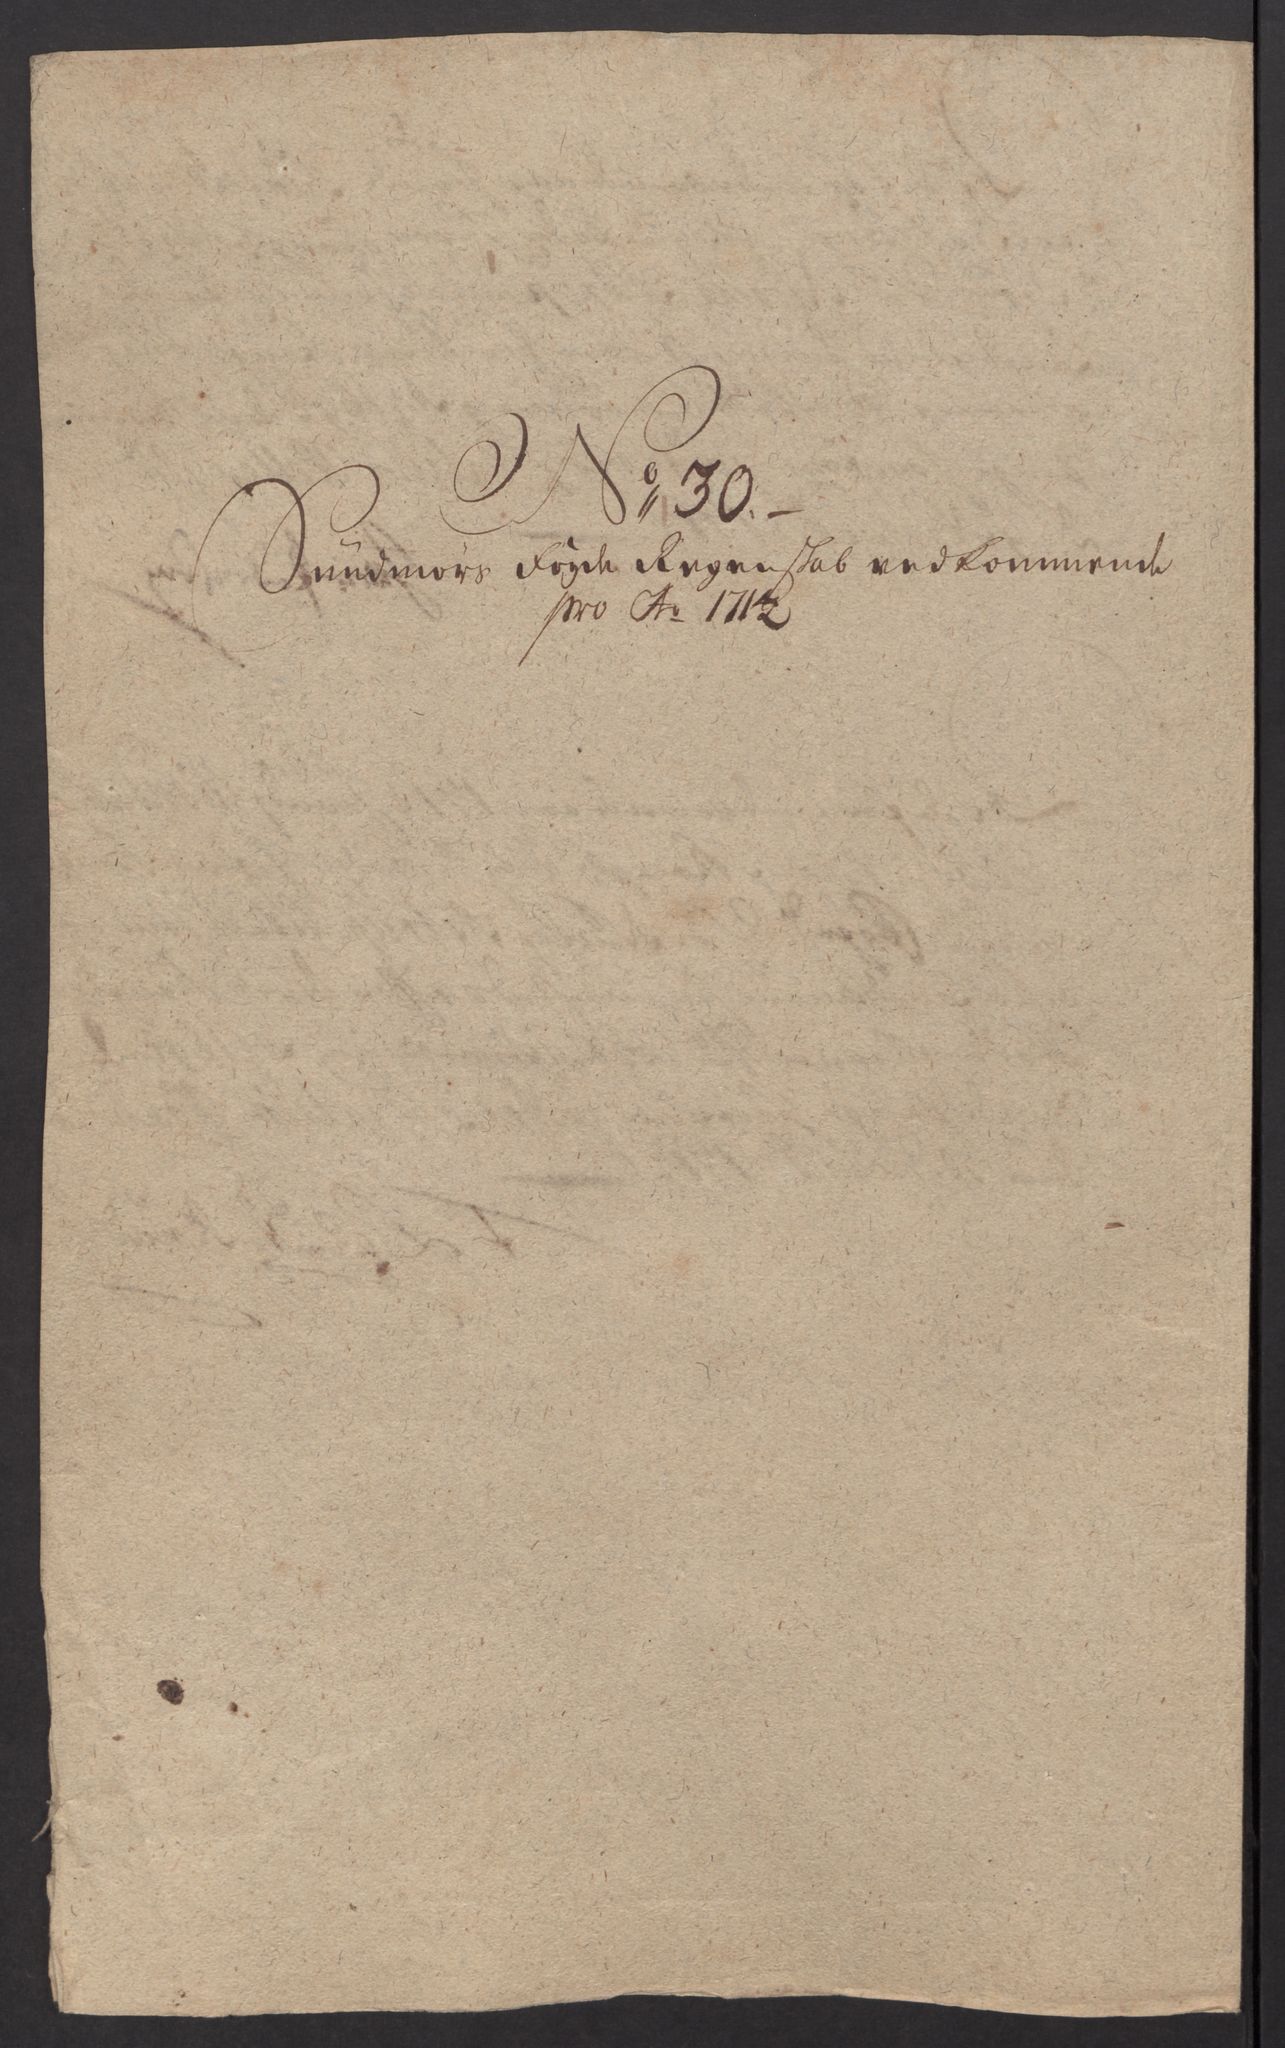 No 30.
Sundmørs fogde Regenskab vedkommende
pro Ao 1712